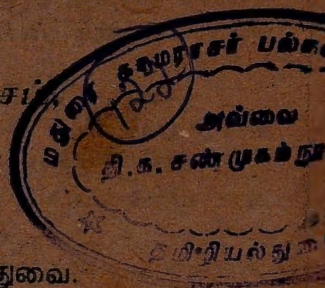 மதுரை காமராசர் பல்க
அவ்வை
தி.க. சண்முகம் நூ
தமிழியல்து
துவை.